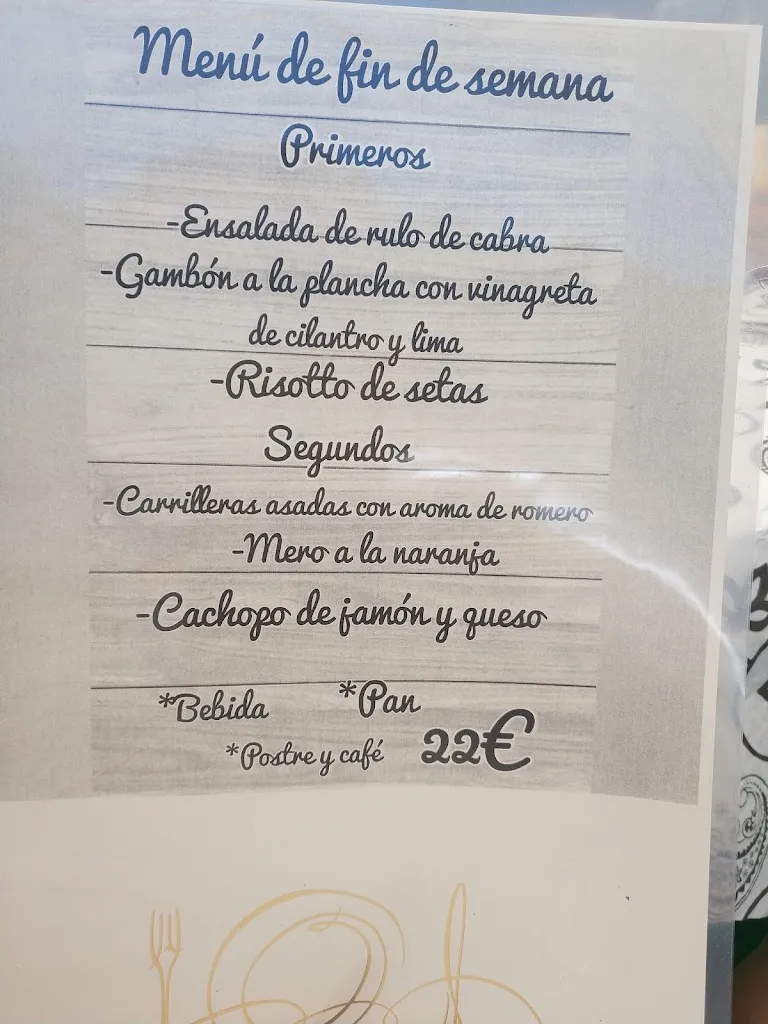 Menú de fin de semana
Primeros
-Ensalada de rulo de cabra
-Gambón a la plancha con vinagreta
de cilantro y lima
-Risotto de setas
Segundos
-Carrilleras asadas con aroma de romero
-Mero a la naranja
-Cachopo de jamón y queso
*Bebida *Pan
*Postre y café 22€